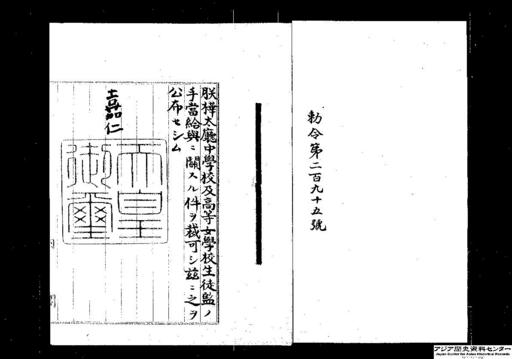 勅令第二百九十五號
朕樺太廳中學校及高等女學校生徒監ノ
手當給與ニ關スル件ヲ裁可シ茲ニ之ヲ
公布セシム
嘉仁
天皇
御璽
アジア歴史資料センター
Japan Center for Asian Historical Records